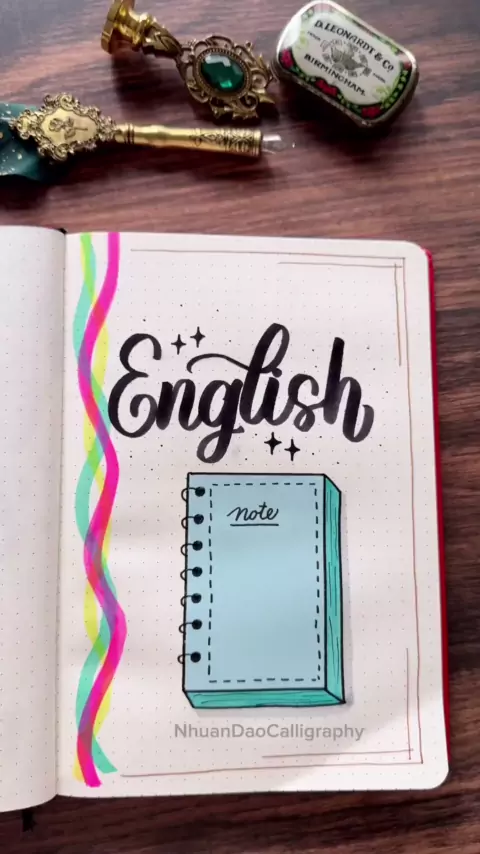 D. LEONARDT & Co
BIRMINGHAM
English
note
NhuanDaoCalligraphy